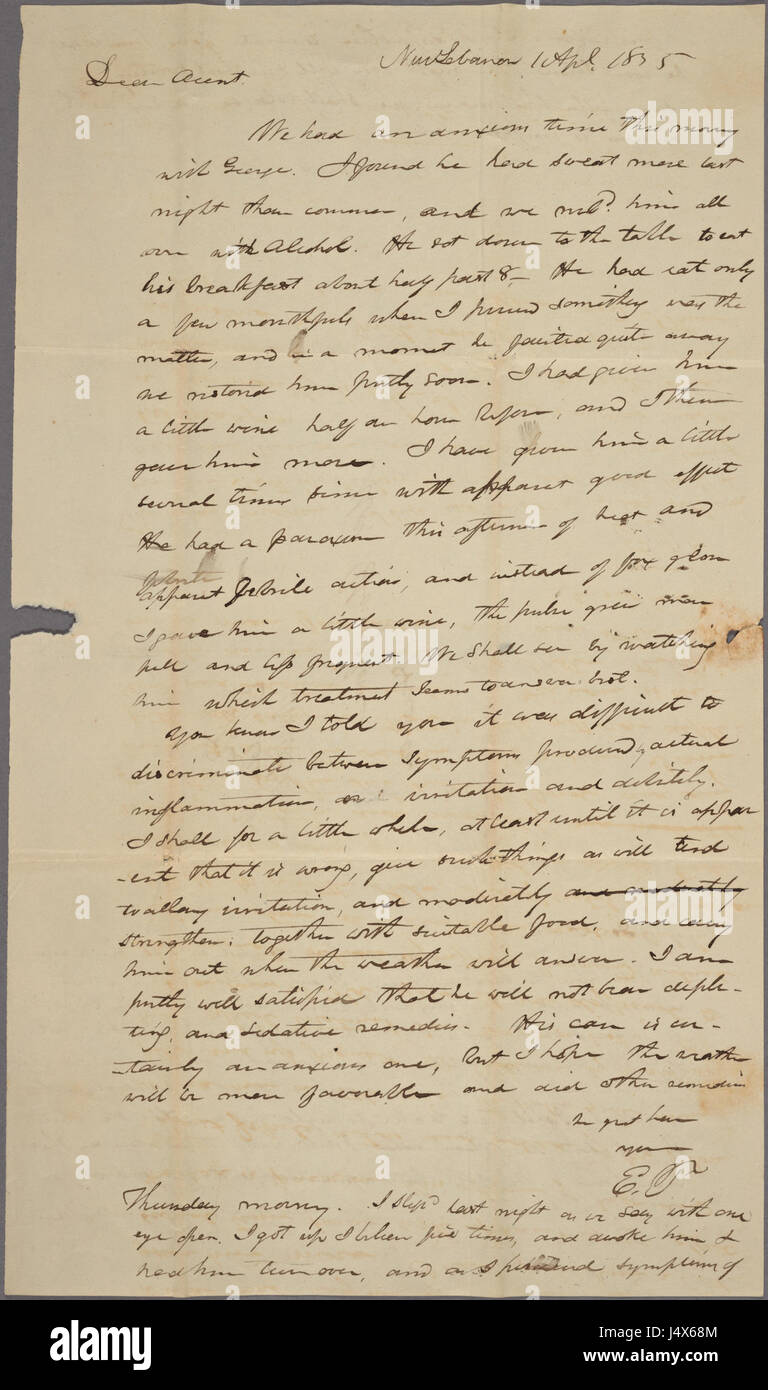 New Lebanon 1 Apl. 1835
Dear Aunt
We had an anxious time this morng
with George. I found he had sweat more last
night than common, and we rubd. him all
over with Alcohol. He sot down to the table to eat
his breakfast about half past 8,- He had eat only
a few mouthfuls when I percevd something was the
matter, and in a moment he fainted quite away
we restored him pretty soon. I had given him
a little wine half an hour before, and I then
gave him more. I have given him a little
several times since with apparet good effect
He had a paroxism this afternoon of heat and
febrile
apparet febrile action, and instead of fox glove
I gave him a little wine, the pulse grew more
full and less frequent. We shall see by watching
him which treatment seems to answer best.
You know I told you it was difficult to
discriminate between symptoms producd, actual
inflammation, or irritation and debility.
I shall for a little while, at least until it is appar
-ent that it is wrong, give such things as will tend
to allay irritation, and moderately and moderatly
strengthen; together with suitable food, and carry
him out when the weather will answer. I am
pretty well satisfied that he will not bear deple-
ting, and sedative remedies. His case is cer-
-tainly an anxious one, but I hope the weather
will be more favorable and aid other remedies
in great haste
yours
E.
Thursday morng. I slept last night as we say with one
eye open. I got up I believe five times, and awoke him &
had him turn over, and as I symptoms of
alamy
alamy stock photo
J4X68M
www.alamy.com